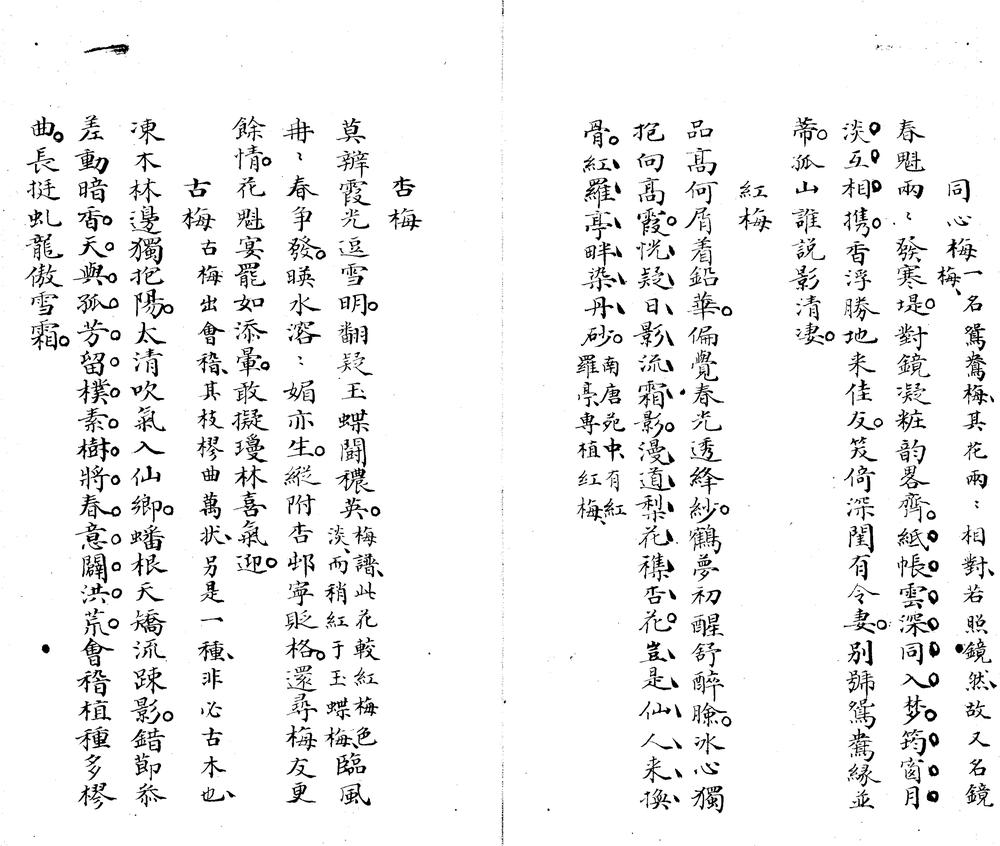 同心梅一名鴛鴦梅其花兩〻相對若照鏡然故又名鏡梅
春魁兩〻發寒堤對鏡凝粧韵畧齊紙帳雲深同入梦筠窗月
淡互相携香浮勝地来佳友笑倚深閨有令妻別號鴛鴦縁並
蒂孤山誰説影清凄
紅梅
品高何屑着鉛華偏覺春光透絳紗鶴夢初醒舒醉臉冰心獨
抱向高霞恍疑日影流霜影漫道梨花襍杏花豈是仙人来換
骨紅羅亭畔染丹砂南唐苑中有紅羅亭専植紅梅
杏梅
莫辨霞光逗雪明翻疑玉蝶鬪穠英梅譜此花較紅梅色淡而稍紅于玉蝶梅臨風
冉〻春争發暎水溶〻媚亦生縱附杏邨寜貶格還尋梅友更
餘情花魁宴罷如添暈敢擬瓊林喜氣迎
古梅古梅出會稽其枝樛曲萬狀另是一種非必古木也
凍木林邊獨抱陽太清吹氣入仙鄉蟠根夭矯流踈影錯節叅
差動暗香天與孤芳留樸素樹將春意闢洪荒會稽植種多樛
曲長挺虬龍傲雪霜